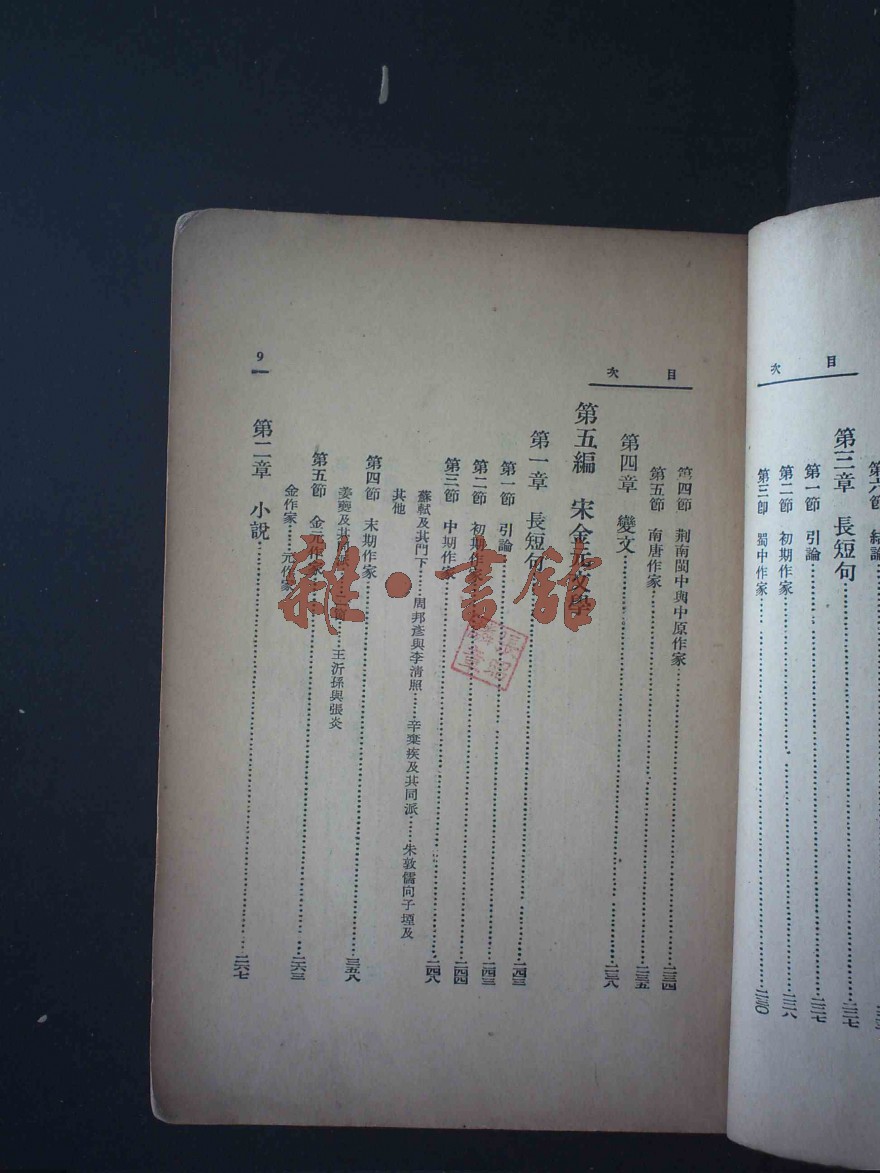 目次
第六節 結論
第三章 長短句……二二七
第一節 引論……二二七
第二節 初期作家……二二八
第三節 蜀中作家……二三〇
目次
第四節 荆南閩中與中原作家……二三四
第五節 南唐作家……二三五
第四章 變文……二三八
第五編 宋金元文學
第一章 長短句……二四三
第一節 引論……二四三
第二節 初期作家……二四四
第三節 中期作家……二四八
蘇軾及其門下……周邦彥與李清照……辛棄疾及其同派……朱敦儒向子堙及
其他
第四節 末期作家……三五八
姜夔及其……王沂孫與張炎
第五節 金元作家……二六三
金作家……元作家
第二章 小說……二六七
9
雜·書館